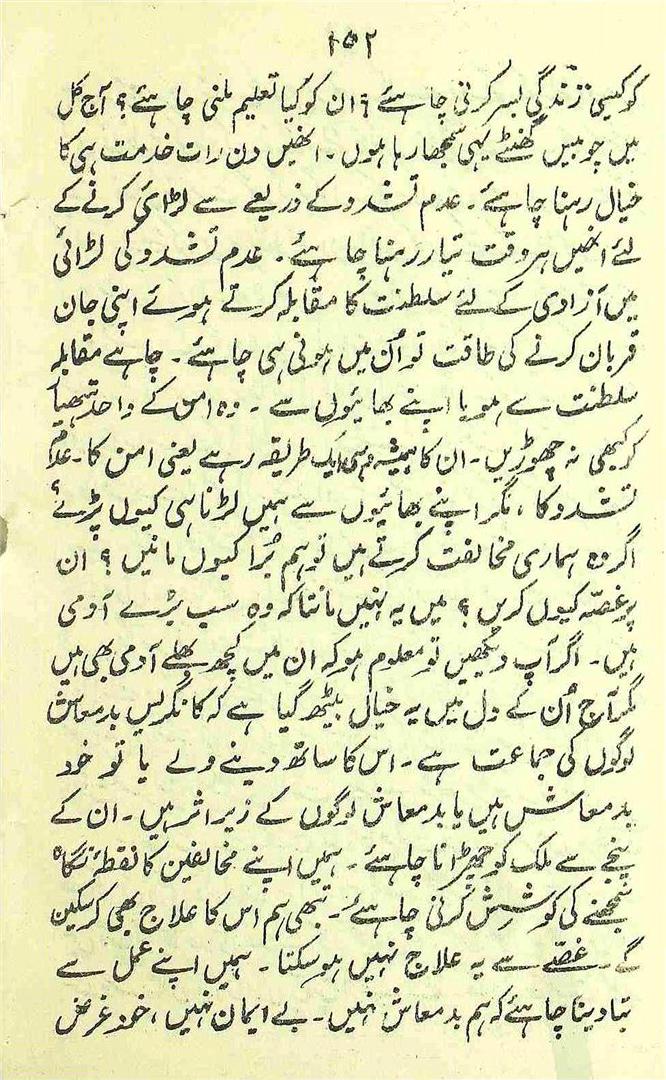 ۱۵۲
کو کیسی زندگی بسر کرنی چاہئے؟ ان کو کیا تعلیم ملنی چاہئے؟ آج کل
میں چوبیس گھنٹے یہی سمجھا رہا ہوں۔ انھیں دن رات خدمت ہی کا
خیال رہنا چاہئے۔ عدم تشدد کے ذریعے سے لڑائی کرنے کے
لئے انھیں ہر وقت تیار رہنا چاہئے۔ عدم تشدد کی لڑائی
میں آزادی کے لئے سلطنت کا مقابلہ کرتے ہوئے اپنی جان
قربان کرنے کی طاقت تو اُن میں ہونی ہی چاہئے۔ چاہے مقابلہ
سلطنت سے ہو یا اپنے بھائیوں سے۔ وہ امن کے واحد ہتھیا
ر کبھی نہ چھوڑیں۔ ان کا ہمیشہ وہی ایک طریقہ رہے یعنی امن کا۔ عدم
تشدد کا، مگر اپنے بھائیوں سے ہمیں لڑنا ہی کیوں پڑے؟
اگر وہ ہماری مخالفت کرتے ہیں تو ہم بُرا کیوں مانیں؟ ان
پر غصّہ کیوں کریں؟ میں یہ نہیں مانتا کہ وہ سب بُرے آدمی
ہیں۔ اگر آپ دیکھیں تو معلوم ہو کہ ان میں کچھ بھلے آدمی بھی ہیں
مگر آج اُن کے دل میں یہ خیال بیٹھ گیا ہے کہ کانگریس بدمعاش
لوگوں کی جماعت ہے۔ اس کا ساتھ دینے ولے یا تو خود
بدمعاش ہیں یا بدمعاش لوگوں کے زیر اثر ہیں۔ ان کے
پنجے سے ملک کو چھڑانا چاہئے۔ ہمیں اپنے مخالفین کا نقطۂ نگاہ
سمجھنے کی کوشش کرنی چاہئے۔ تبھی ہم اس کا علاج بھی کر سکیں
گے۔ غصّے سے یہ علاج نہیں ہو سکتا۔ ہمیں اپنے عمل سے
بتا دینا چاہئے کہ ہم بدمعاش نہیں۔ بے ایمان نہیں، خود غرض